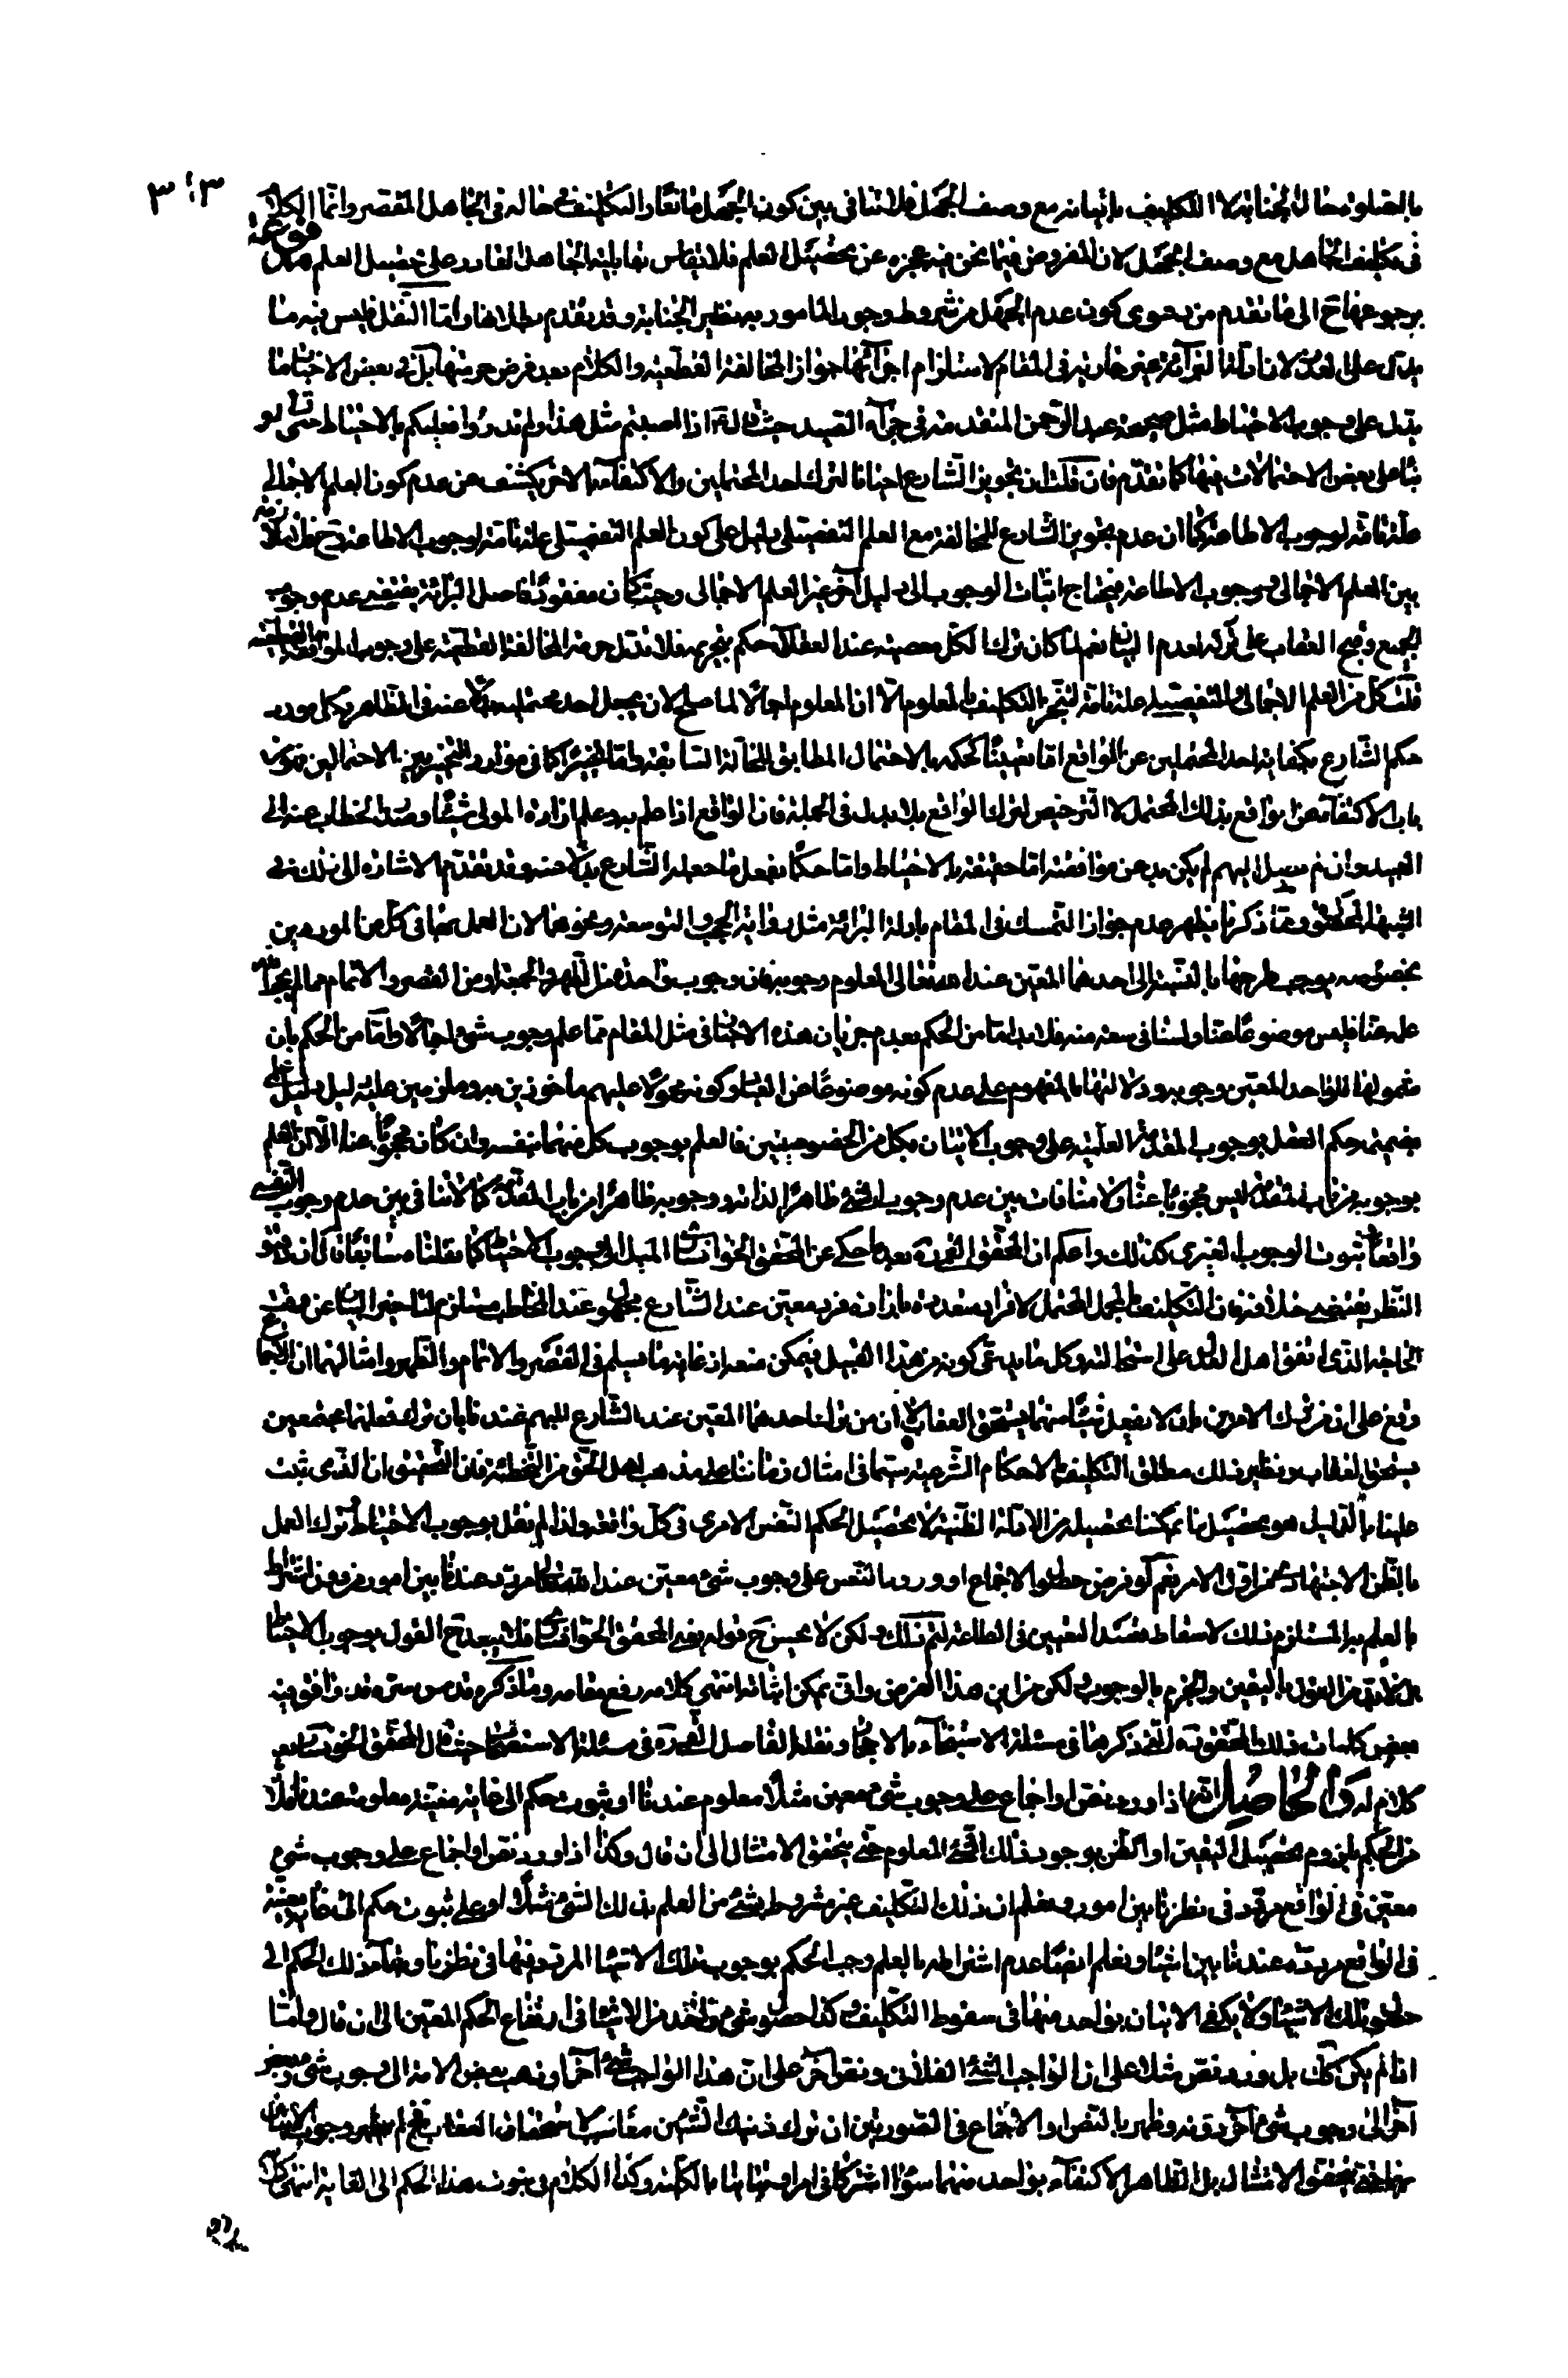 ٣١٣
بالصلوة حال الجنابة لا التكليف باتيانه مع وصف الجهل فلا تنافى بين كون الجهل مانعا والتكليف فى حاله فى الجاهل المقصر وانما الكلام
فى تكليف الجاهل مع وصف الجهل لان المفروض فيما نحن فيه عجزه عن تحصيل العلم فلا يقاس بقابلية الجاهل القادر على تحصيل العلم
برجوعها ح الى ما تقدم من دعوى كون عدم الجهل من شروط وجود المامور به نظير الجنابة وقد تقدم بطلانها واما النقل فليس فيه ما
يدل على العذر لان ادلة البرائة غير جارية فى المقام لاستلزام اجرائها جواز المخالفة القطعية والكلام بعد فرض حرمتها بل فى بعض الاخبار ما
يدل على وجوب الاحتياط مثل صحيحة عبد الرحمن المتقدمة فى جزاء الصيد حيث قال ع اذا اصبتم مثل هذا ولم تدروا فعليكم بالاحتياط حتى تسالوا
بناء على بعض الاحتمالات فيها كما تقدم فان قلت ان تجويز الشارع احيانا لترك احد المحتملين والاكتفاء بالاخر يكشف عن عدم كون العلم الاجمالى
علة تامة لوجوب الاطاعة كما ان عدم تجويز الشارع للمخالفة مع العلم التفصيلى دليل على كون العلم التفصيلى علة تامة لوجوب الاطاعة وح فلا ملازمة
بين العلم الاجمالى ووجوب الاطاعة فيحتاج اثبات الوجوب الى دليل آخر غير العلم الاجمالى وحيث كان مفقودا فاصل البرائة يقتضى عدم وجوب
الجمع وقبح العقاب على تركه لعدم البيان نعم لما كان ترك الكل معصية عند العقلاء حكم بتحريمه فلا تدل حرمة المخالفة القطعية على وجوب الموافقة القطعية
قلت كل من العلم الاجمالى والتفصيلى علة تامة لتنجز التكليف بالمعلوم الا ان المعلوم اجمالا لما صلح لان يجعل احد محتمليه بدلا عنه فى الظاهر فكل مورد
حكم الشارع بكفاية احد المحتملين عن الواقع اما تعيينا كحكمه بالاحتمال المطابق للحالة السابقة واما تخييرا كما فى موارد التخيير بين الاحتمالين فهو من
باب الاكتفاء عن الواقع بذلك المحتمل لا الترخيص لترك الواقع بلا بدل فى الجملة فان الواقع اذا علم به وعلم ارادة المولى شيئا وصدر الخطاب عنه الى
العبيد وان لم يصل اليهم لم يكن بد عن موافقته اما حقيقة بالاحتياط واما حكما بفعل ما جعله الشارع بدلا عنه وقد تقدم الاشارة الى ذلك فى
الشبهة المحصورة ومما ذكرنا يظهر عدم جواز التمسك فى المقام بادلة البرائة مثل رواية الحجب والتوسعة ونحوهما لان العمل بها فى كل من الموردين
بخصوصه يوجب طرحها بالنسبة الى احدهما المعين عند الله تعالى المعلوم وجوبه فان وجوب واحدة من الظهر والجمعة او من القصر والاتمام مما لم يحجب
علمه عنا فليس موضوعا عنا ولسنا فى سعة منه فلا بد اما من الحكم بعدم جريان هذه الاخبار فى مثل المقام مما علم وجوب شئ اجمالا واما من الحكم بان
شمولها للواحد المعين وجوبه ودلالتها بالمفهوم على عدم كونه موضوعا عن العباد وكونه محمولا عليهم ماخوذين به وملزمين عليه دليل علمى
بضميمة حكم العقل بوجوب المقدمة العلمية على وجوب الاتيان بكل من الخصوصيتين فالعلم بوجوب كل منهما بنفسه وان كان محجوبا عنا الا ان العلم
بوجوبه من باب المقدمة ليس محجوبا عنا ولا منافات بين عدم وجوب الشئ ظاهرا لذاته ووجوبه ظاهرا من باب المقدمة كما لا تنافى بين عدم وجوب النفسى
واقعا وثبوت الوجوب الغيرى كذلك واعلم ان المحقق القمى ره بعد ما حكى عن المحقق الخوانسارى الميل الى وجوب الاحتياط كما نقلنا سابقا قال ان دقيق
النظر يقتضى خلافه فان التكليف بالمجمل المحتمل لافراد متعددة بارادة فرد معين عند الشارع مجهول عند المخاطب مستلزم لتاخير البيان عن وقت
الحاجة الذى اتفق اهل العدل على استحالته وكل ما يدعى كونه من هذا القبيل فيمكن منعه اذ غاية ما يسلم فى القصر والاتمام والظهر وامثالهما ان الاجماع
وقع على ان من ترك الامرين بان لا يفعل شيئا منهما يستحق العقاب لا ان من ترك احدهما المعين عند الشارع المبهم عندنا بان ترك فعلهما مجتمعين
يستحق العقاب ونظير ذلك مطلق التكليف بالاحكام الشرعية سيما فى امثال زماننا على مذهب اهل الحق من التخطئة فان التحقيق ان الذى ثبت
علينا بالدليل هو تحصيل ما يمكننا تحصيله من الادلة الظنية لا تحصيل الحكم النفس الامرى فى كل واقعة ولذا لم نقل بوجوب الاحتياط وترك العمل
بالظن الاجتهادى من اول الامر نعم لو فرض حصول الاجماع او ورود النص على وجوب شئ معين عند الله تعالى مردد عندنا بين امور من دون اشتراط
بالعلم به المستلزم ذلك لاسقاط قصد التعيين فى الطاعة لتم ذلك ولكن لا يحسن ح قوله يعنى المحقق الخوانسارى فلا يبعد ح القول بوجوب الاحتياط
بل لا بد من القول باليقين والجزم بالوجوب ولكن من اين هذا الفرض وانى يمكن اثباته انتهى كلامه رفع مقامه وما ذكره قدس سره قد وافق فيه
بعض كلمات ذلك المحقق التى ذكرها فى مسئلة الاستنجاء بالاحجار ونقله الفاضل القمى ره فى مسئلة الاستصحاب حيث قال المحقق الخوانسارى بعد
كلام له والحاصل انه اذا ورد نص او اجماع على وجوب شئ معين مثلا معلوم عندنا او ثبوت حكم الى غاية معينة معلومة عندنا فلا بد
من الحكم بلزوم تحصيل اليقين او الظن بوجود ذلك الشئ المعلوم حتى يتحقق الامتثال الى ان قال وكذا اذا ورد نص او اجماع على وجوب شئ
معين فى الواقع مردد فى نظرنا بين امور ويعلم ان ذلك التكليف غير مشروط بشئ من العلم بذلك الشئ مثلا او على ثبوت حكم الى غاية معينة
فى الواقع مرددة عندنا بين اشياء ويعلم ايضا عدم اشتراطه بالعلم وجب الحكم بوجوب تلك الاشياء المردد فيها فى نظرنا وبقاء ذلك الحكم الى
حصول تلك الاشياء ولا يكفى الاتيان بواحد منها فى سقوط التكليف وكذا حصول شئ واحد من الاشياء فى ارتفاع الحكم المعين الى ان قال واما
اذا لم يكن كك بل ورد نص مثلا على ان الواجب الشئ الفلانى ونص آخر على ان هذا الواجب شئ آخر او ذهب بعض الامة الى وجوب شئ وبعض
آخر الى وجوب شئ آخر دونه وظهر بالنص او الاجماع فى الصورتين ان ترك ذينك الشيئين معا سبب لاستحقاق العقاب فح لم يظهر وجوب الاتيان
بهما حتى يتحقق الامتثال بل الظاهر الاكتفاء بواحد منهما سواء اشتركا فى امر او تباينا بالكلية وكذا الكلام فى ثبوت هذا الحكم الى الغاية انتهى كلامه